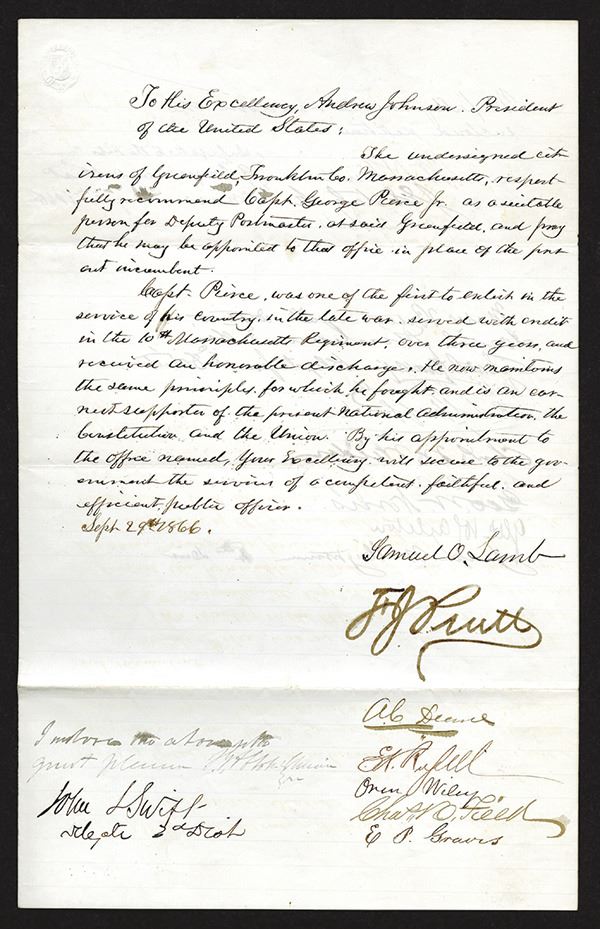 To His Excellency, Andrew Johnson. President
of the United States;
The undersigned cit-
izens of Greenfield, Franklin Co. Massachusetts, respect-
fully recommend Capt. George Pierce Jr. as a suitable
person for Deputy Postmaster, at said Greenfield, and pray
that he may be appointed to that office in place of the pres-
ent incumbent.
Capt. Pierce, was one of the first to enlist in the
service of his country in the late war. served with credit
in the 10th Massachusetts Regiment, over three years, and
received an honorable discharge. He now maintains
the same principles for which he fought and is an ear-
nest supporter of the present National Administration, the
Constitution and the Union. By his appointment to
the office named, Your Excellency will secure to the gov-
ernment the services of a competent, faithful and
efficient public officer.
Sept. 29th 1866.
Samuel O. Lamb
F J Pratt
A C Deane
Oren Wiley
Chas. O. Field
E P. Graves
I endorse the above
John L Swift
2d Dist